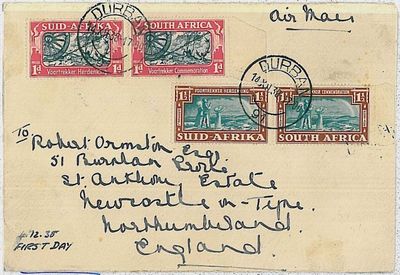 Air Mail
SUID-AFRIKA SOUTH AFRICA
1d Voortrekker Herdenking Voortrekker Commemoration 1d
DURBAN
DURBAN
VOORTREKKER HERDENKING VOORTREKKER COMMEMORATION
1½ 1½
SUID-AFRIKA SOUTH AFRICA
To
Robert Ormston Esq
51
St. Anthony Estate
Newcastle on-Tyne
Northumberland
England.
12.38
FIRST DAY